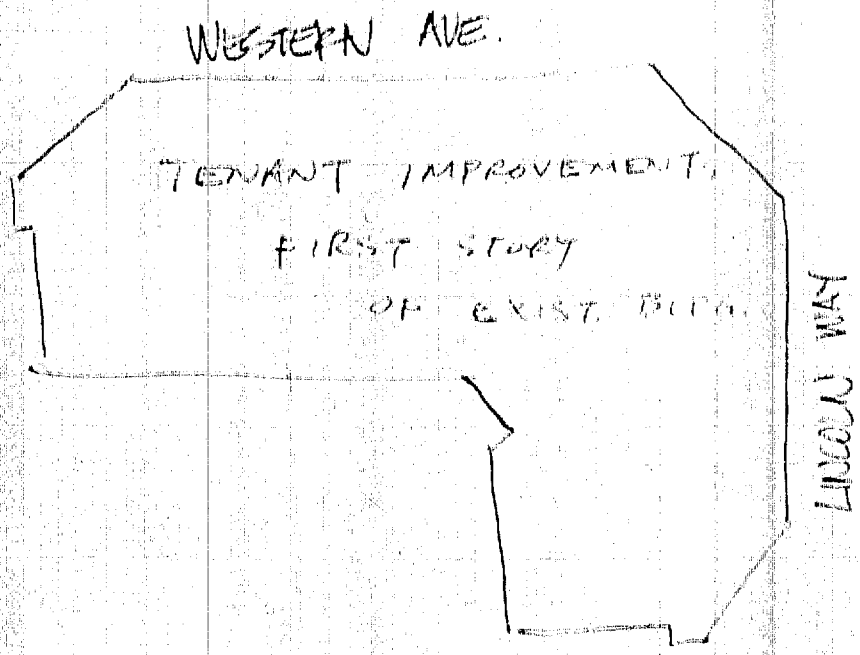 WESTERN AVE.
TENANT IMPROVEMENT,
FIRST STORY
OF EXIST. BLDG.
LINCOLN WAY